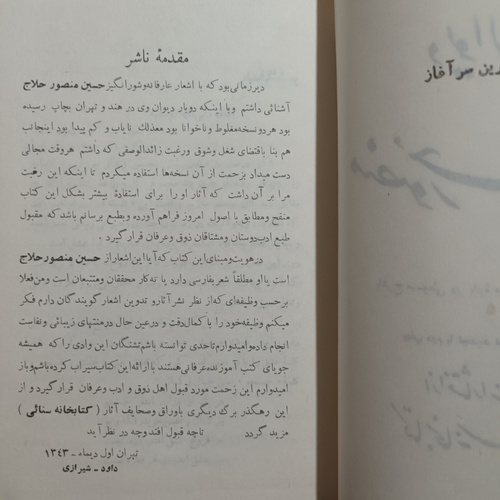 مقدمهٔ ناشر
دیر زمانی بود که با اشعار عارفانه و شورانگیز حسین منصور حلاج
آشنائی داشتم و با اینکه دوبار دیوان وی در هند و تهران بچاپ رسیده
بود هر دو نسخه مغلوط و ناخوانا بود معذلک نایاب و کم پیدا بود اینجانب
هم بنا باقتضای شغل و شوق و رغبت زائدالوصفی که داشتم هر وقت مجالی
دست میداد بزحمت از آن نسخه‌ها استفاده میکردم تا اینکه این رغبت
مرا بر آن داشت که آثار او را برای استفادهٔ بیشتر بشکل این کتاب
منقح و مطابق با اصول امروز فراهم آورده و بطبع برسانم باشد که مقبول
طبع ادب دوستان و مشتاقان ذوق و عرفان قرار گیرد .
در هویت و مبنای این کتاب که آیا این اشعار از حسین منصور حلاج
است یا او مطلقاً شعر بفارسی دارد یا نه کار محققان و متتبعان است و من فعلا
برحسب وظیفه‌ای که از نظر نشر آثار و تدوین اشعار گویندگان دارم فکر
میکنم وظیفه خود را با کمال دقت و در عین حال در منتهای زیبائی و نفاست
انجام داده و امیدوارم تا حدی توانسته باشم تشنگان این وادی را که همیشه
جویای کتب آموزنده عرفانی هستند با ارائه این کتاب سیراب کرده باشم و باز
امیدوارم این زحمت مورد قبول اهل ذوق و ادب و عرفان قرار گیرد و از
این رهگذر برگ دیگری باوراق و صحایف آثار ( کتابخانه سنائی )
مزید گردد تا چه قبول افتد و چه در نظر آید
تهران اول دیماه ۱۳۴۳
داود ـ شیرازی
رین سر آغاز